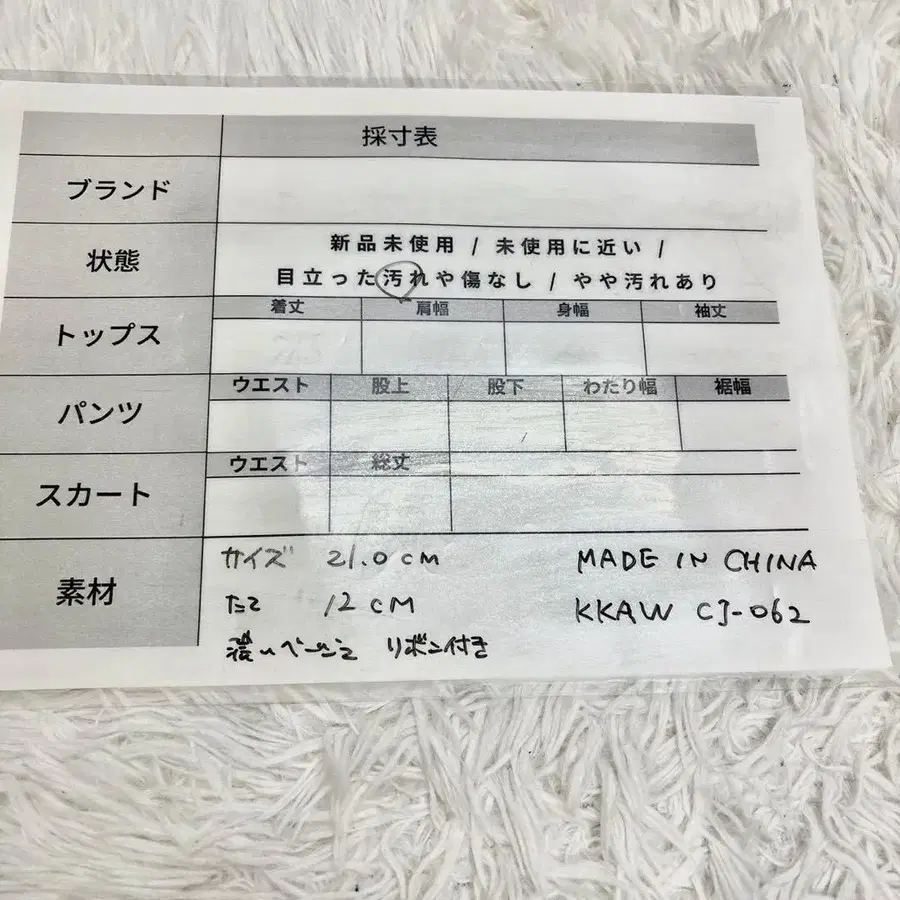 採寸表
ブランド
状態
新品未使用 / 未使用に近い /
目立った汚れや傷なし / やや汚れあり
トップス
着丈 肩幅 身幅 袖丈
パンツ
ウエスト 股上 股下 わたり幅 裾幅
スカート
ウエスト 総丈
素材
サイズ 21.0CM MADE IN CHINA
たて 12CM KKAW CJ-062
濃いベージュ リボン付き